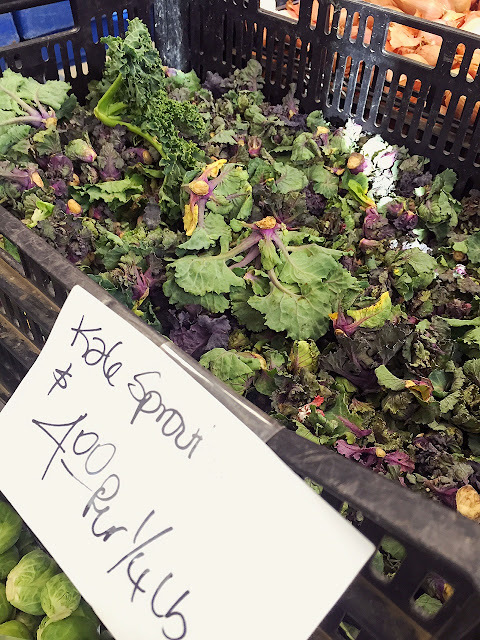 Kale Sprout
$ 4.00
Per 1/4 Lb